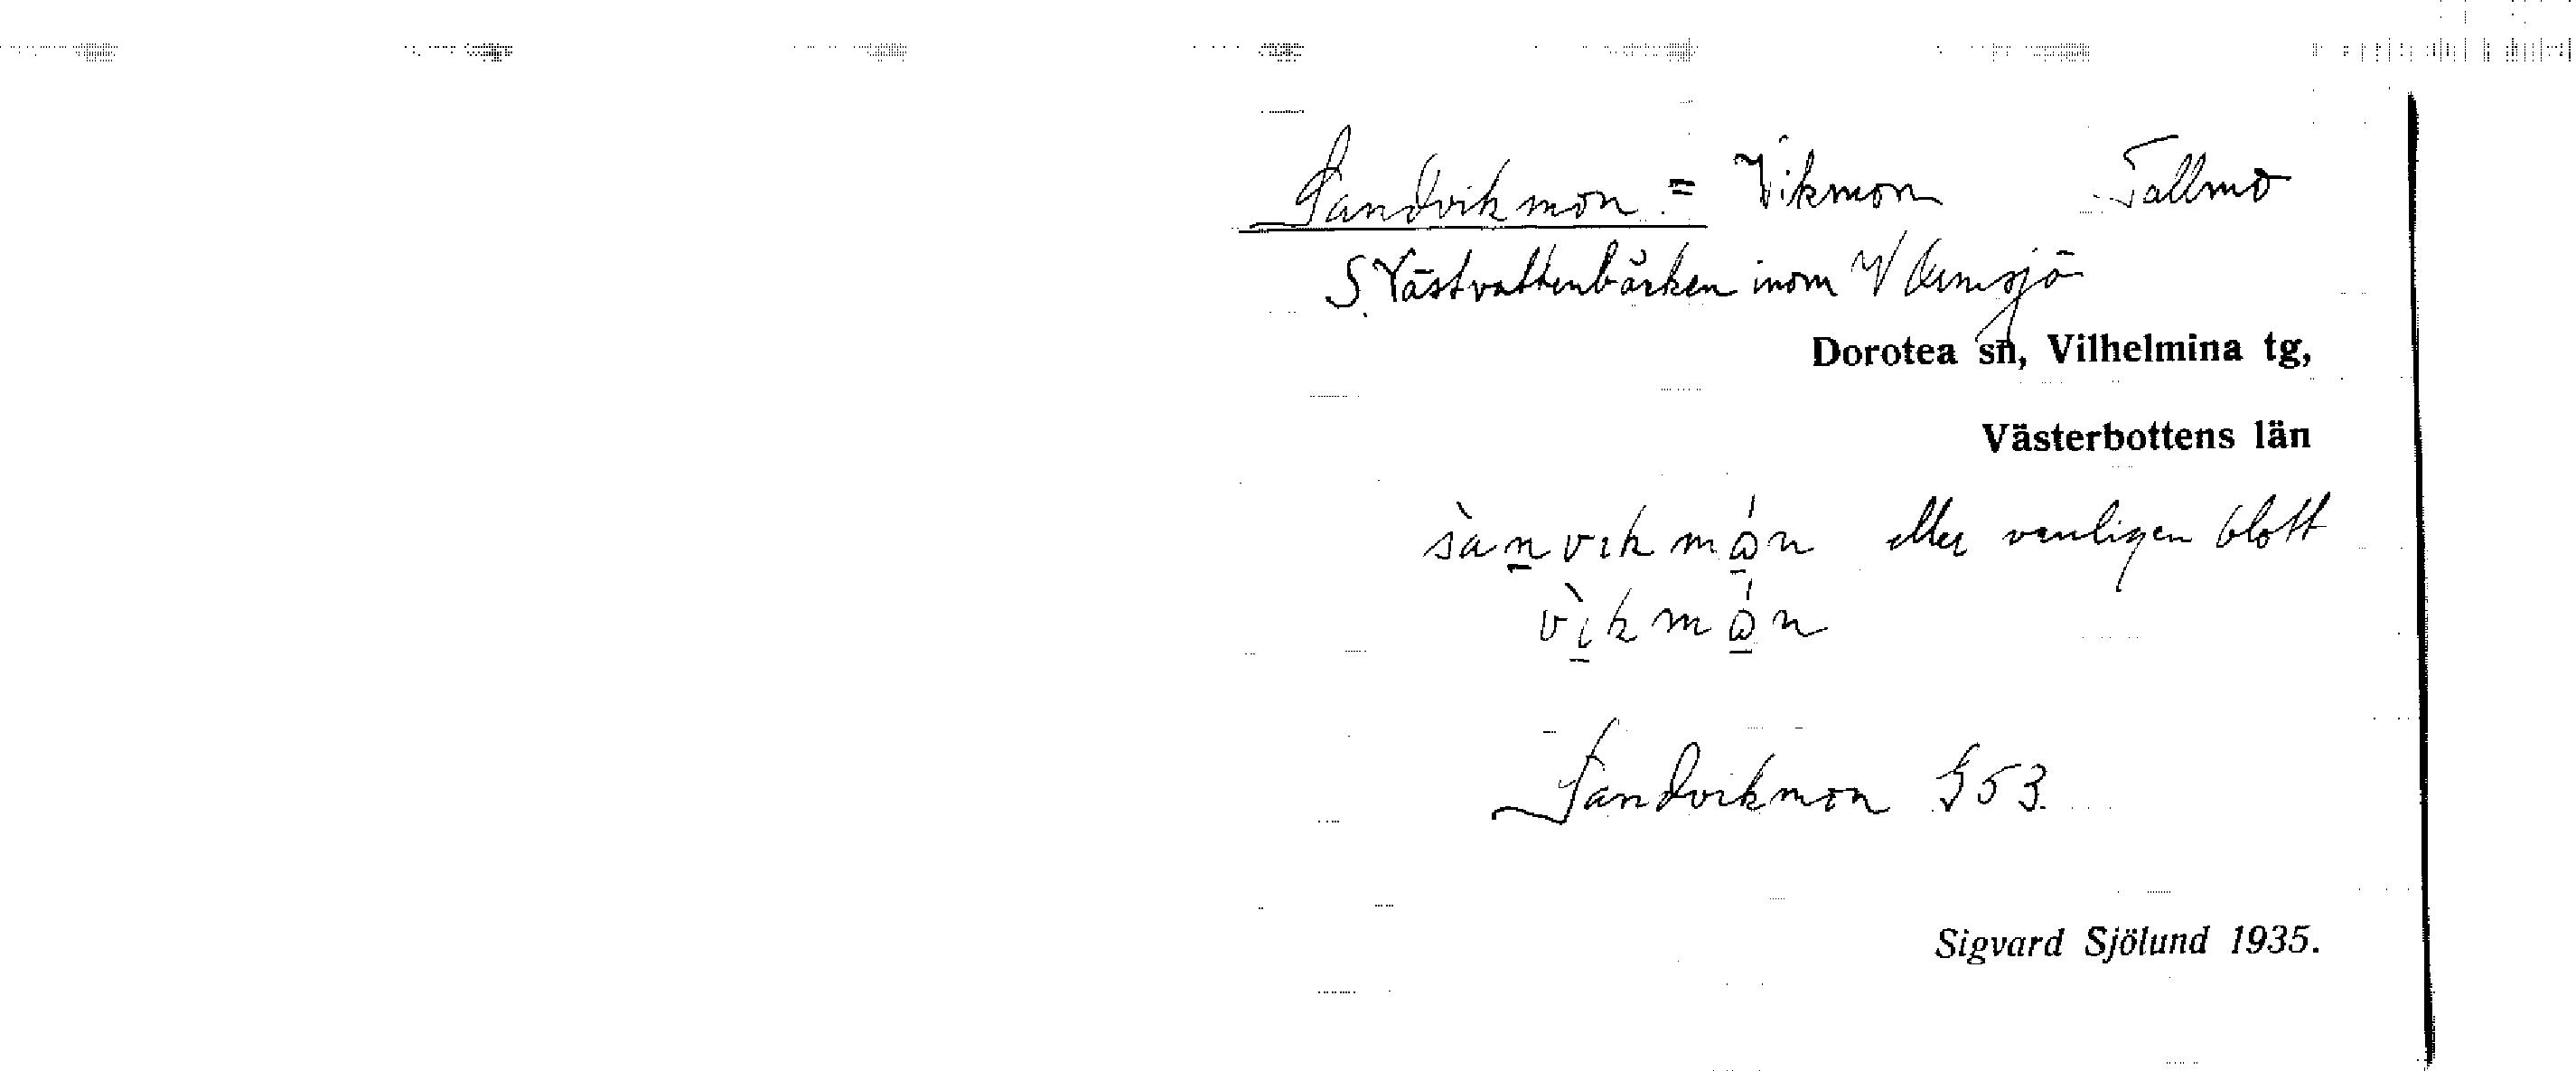 Sandvikmon = Vikmon Tallmo
S. Västvattenbäcken inom V Ormsjö
Dorotea sn, Vilhelmina tg,
Västerbottens län
sànvikmǻn eller vanligen blott
vìkmǻn
Sandvikmon G53
Sigvard Sjölund 1935.